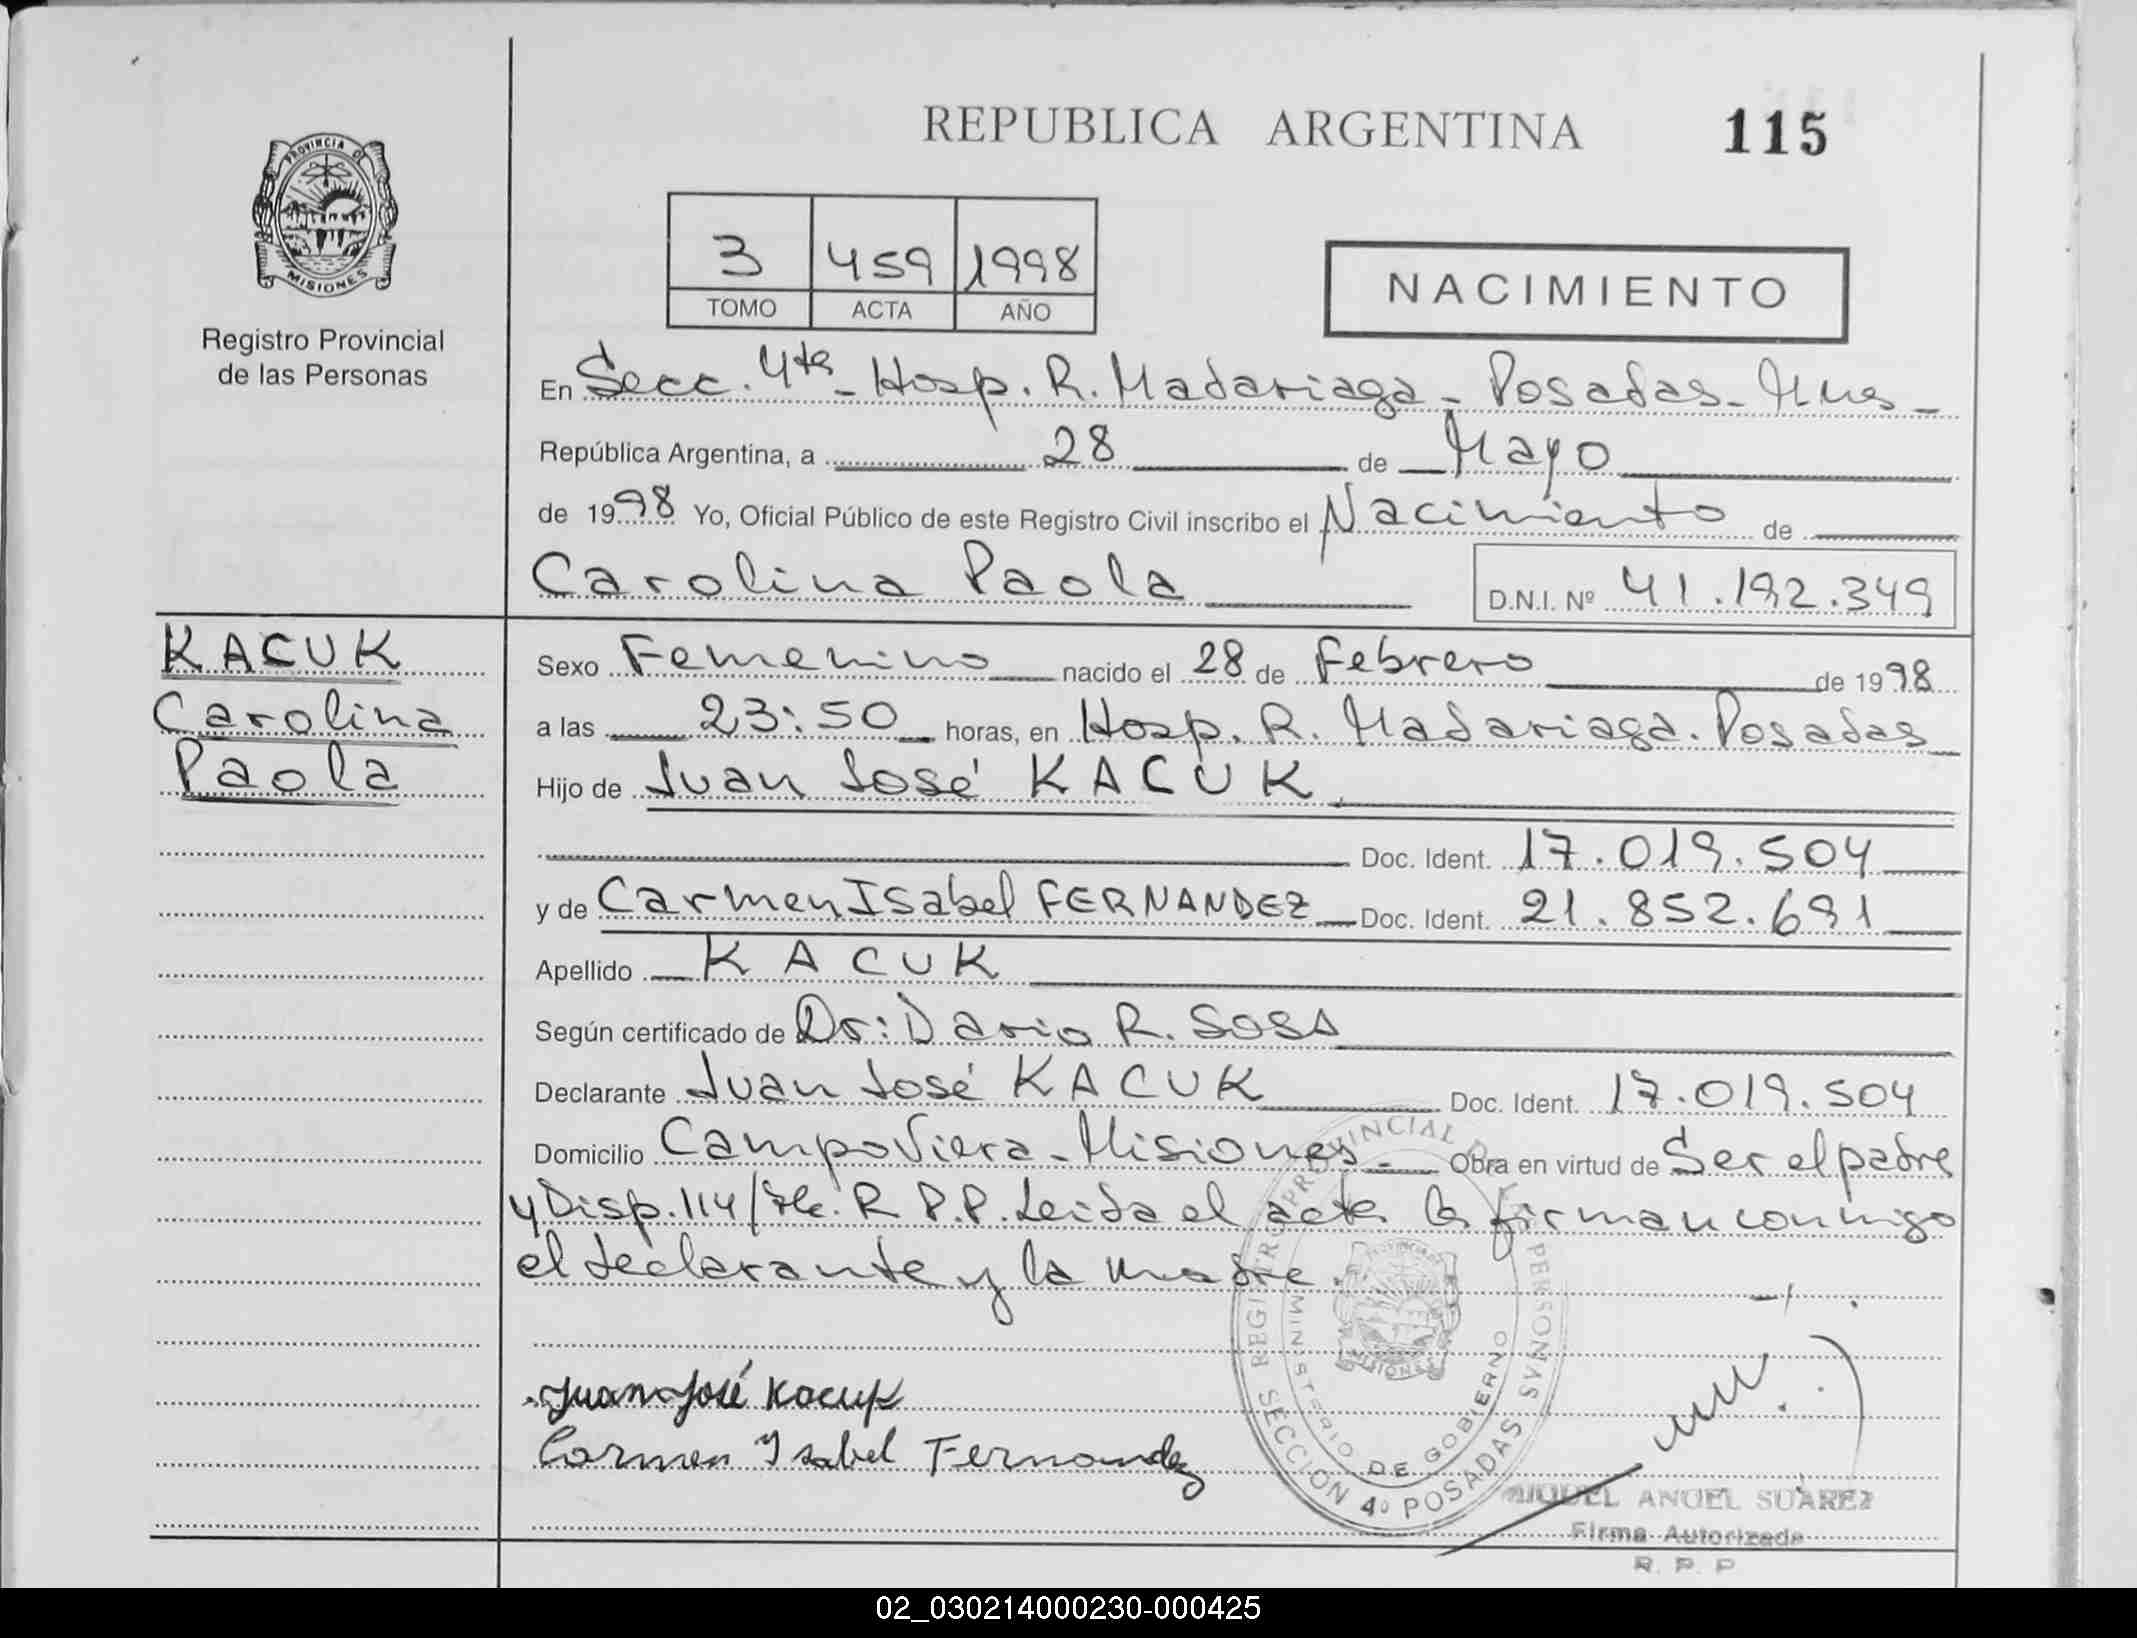 REPUBLICA ARGENTINA 115
PROVINCIA DE
MISIONES
Registro Provincial
de las Personas
3 459 1998
TOMO ACTA AÑO
NACIMIENTO
En Secc. 4ta - Hosp. R. Madariaga - Posadas - Mnes -
República Argentina, a 28 de Mayo
de 1998 Yo, Oficial Público de este Registro Civil inscribo el Nacimiento de
Carolina Paola D.N.I. Nº 41.192.349
KACUK
Carolina
Paola
Sexo Femenino nacido el 28 de Febrero de 1998
a las 23:50 horas, en Hosp. R. Madariaga. Posadas
Hijo de Juan José KACUK
Doc. Ident. 17.019.504
y de Carmen Isabel FERNANDEZ Doc. Ident. 21.852.691
Apellido KACUK
Según certificado de Dr: Dario R. SOSA
Declarante Juan José KACUK Doc. Ident. 17.019.504
Domicilio Campo Viera - Misiones - Obra en virtud de Ser el padre
y Disp. 114/ R.P.P. Leida el acta la firman conmigo
el declarante y la madre.
Juan José Kacuk
Carmen Ysabel Fernandez
REGISTRO PROVINCIAL DE PERSONAS
MINISTERIO DE GOBIERNO
MISIONES
SECCION 4º POSADAS
MIGUEL ANGEL SUAREZ
Firma Autorizada
R. P. P
02_030214000230-000425